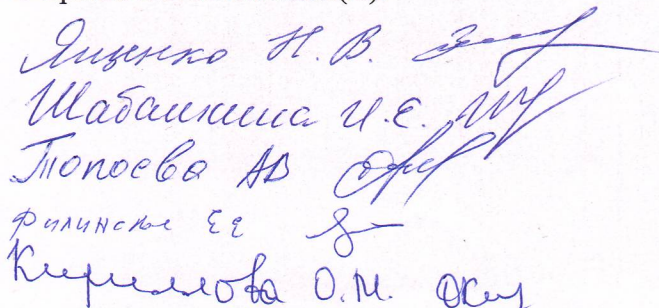 Ященко Н. В.
Шабалкина И. Е.
Топоева АВ
Филинская ЕЕ
Кириллова О.М.